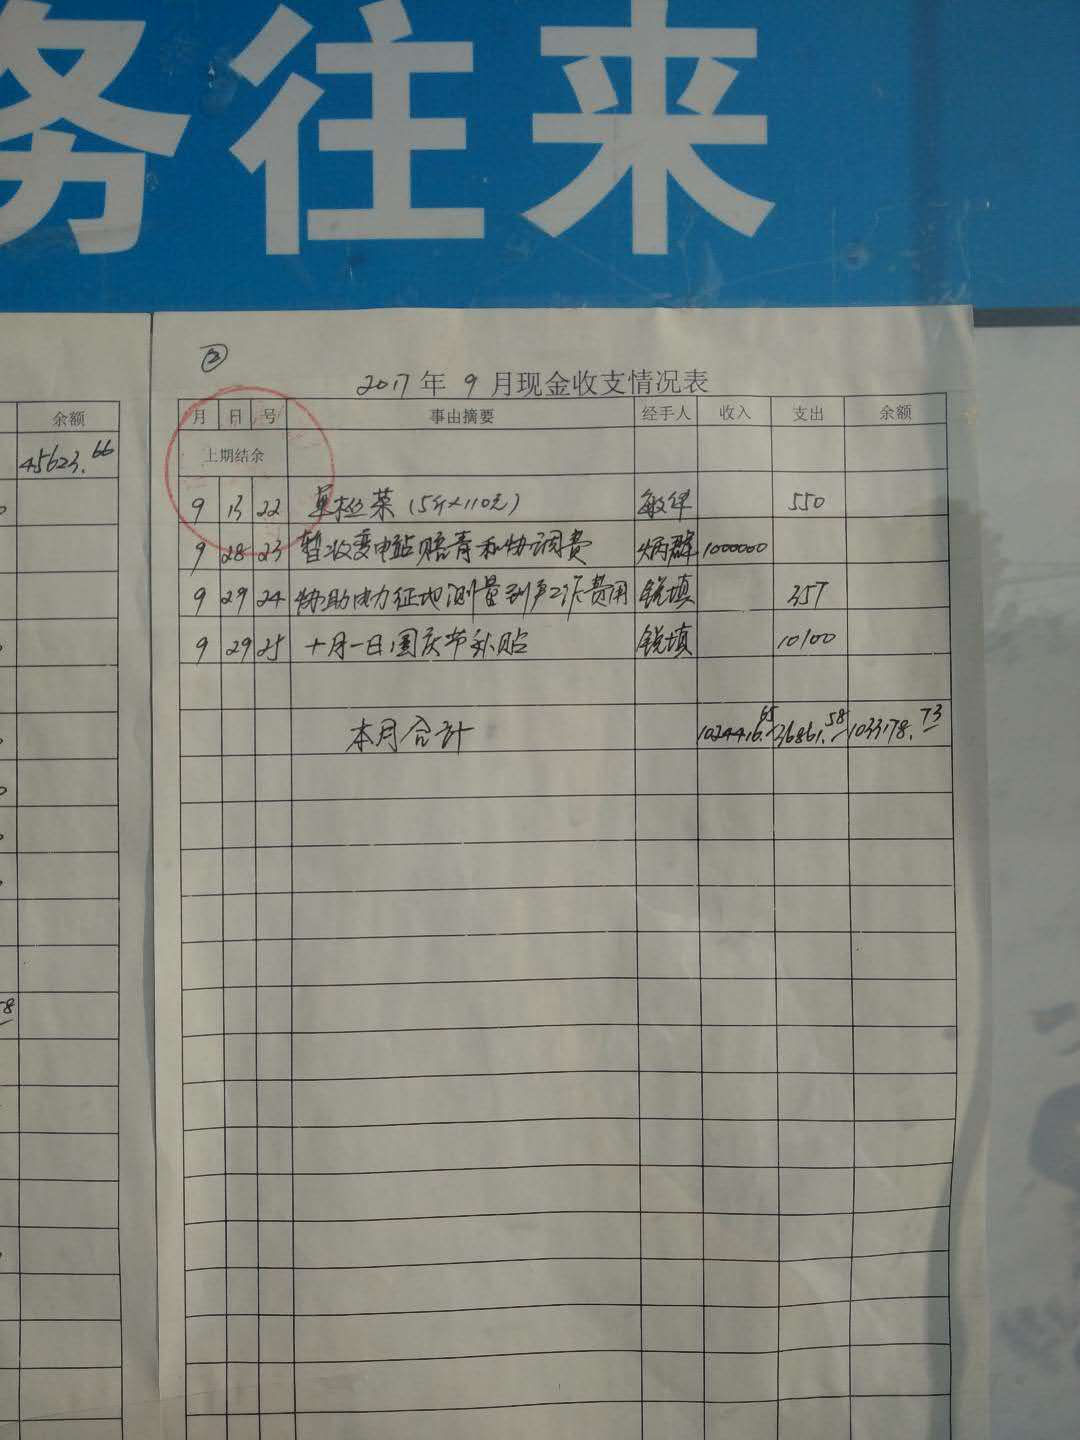 务往来
余额
45623.66
58
②
2017年 9月现金收支情况表
月 日 号 事由摘要 经手人 收入 支出 余额
上期结余
9 13 22 (5斤×110元) 550
9 28 23 暂收变电站赔青和协调费 炳群 1000000
9 29 24 协助电力征地测量 工作费用 锐填 357
9 29 25 十月一日国庆节补贴 锐填 10100
本月合计 1024416.65 36861.58 1033178.73